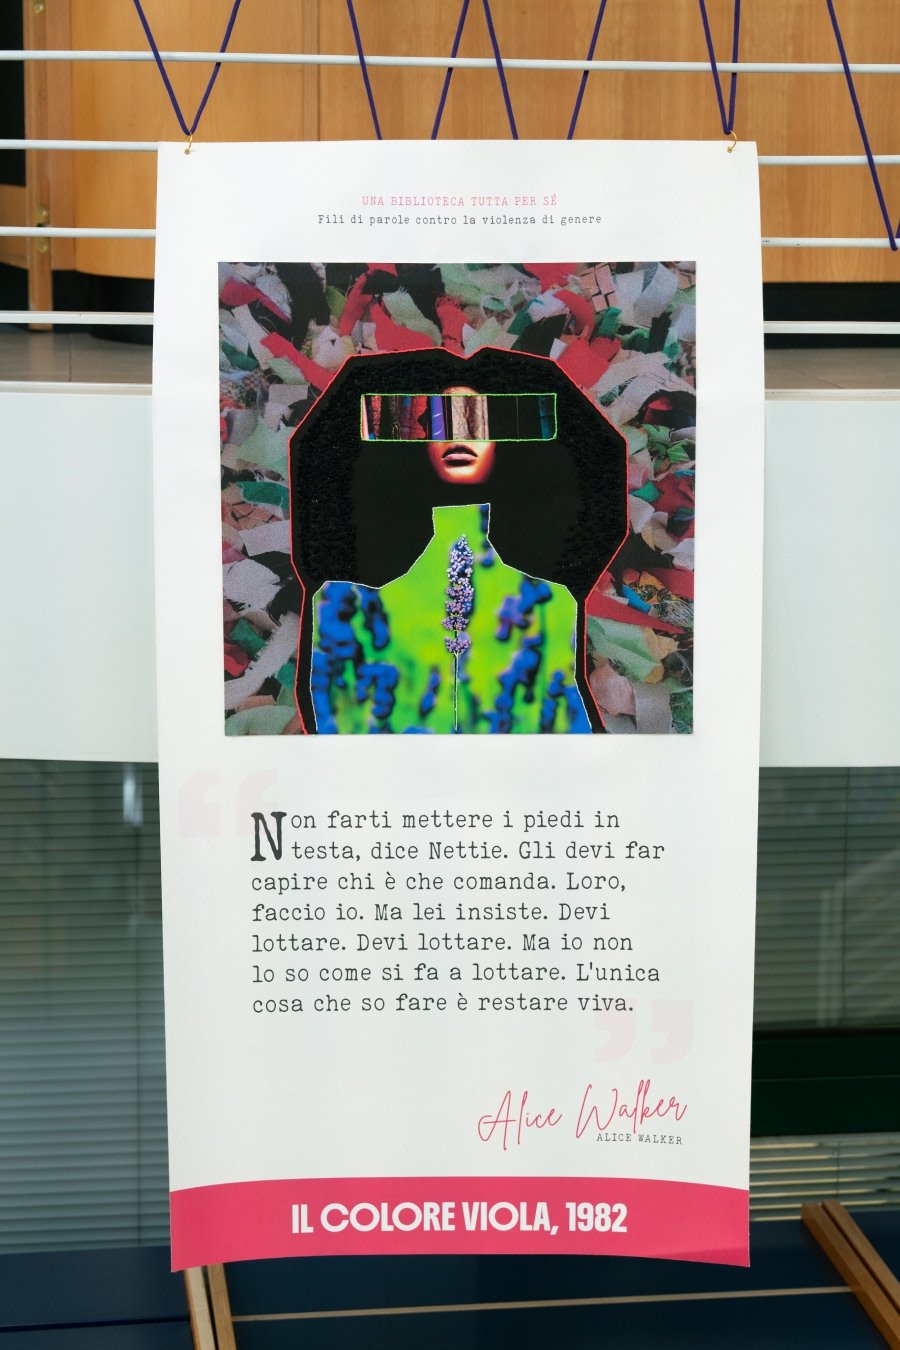 UNA BIBLIOTECA TUTTA PER SÉ
Fili di parole contro la violenza di genere
“
Non farti mettere i piedi in
testa, dice Nettie. Gli devi far
capire chi è che comanda. Loro,
faccio io. Ma lei insiste. Devi
lottare. Devi lottare. Ma io non
lo so come si fa a lottare. L'unica
cosa che so fare è restare viva.
”
Alice Walker
ALICE WALKER
IL COLORE VIOLA, 1982